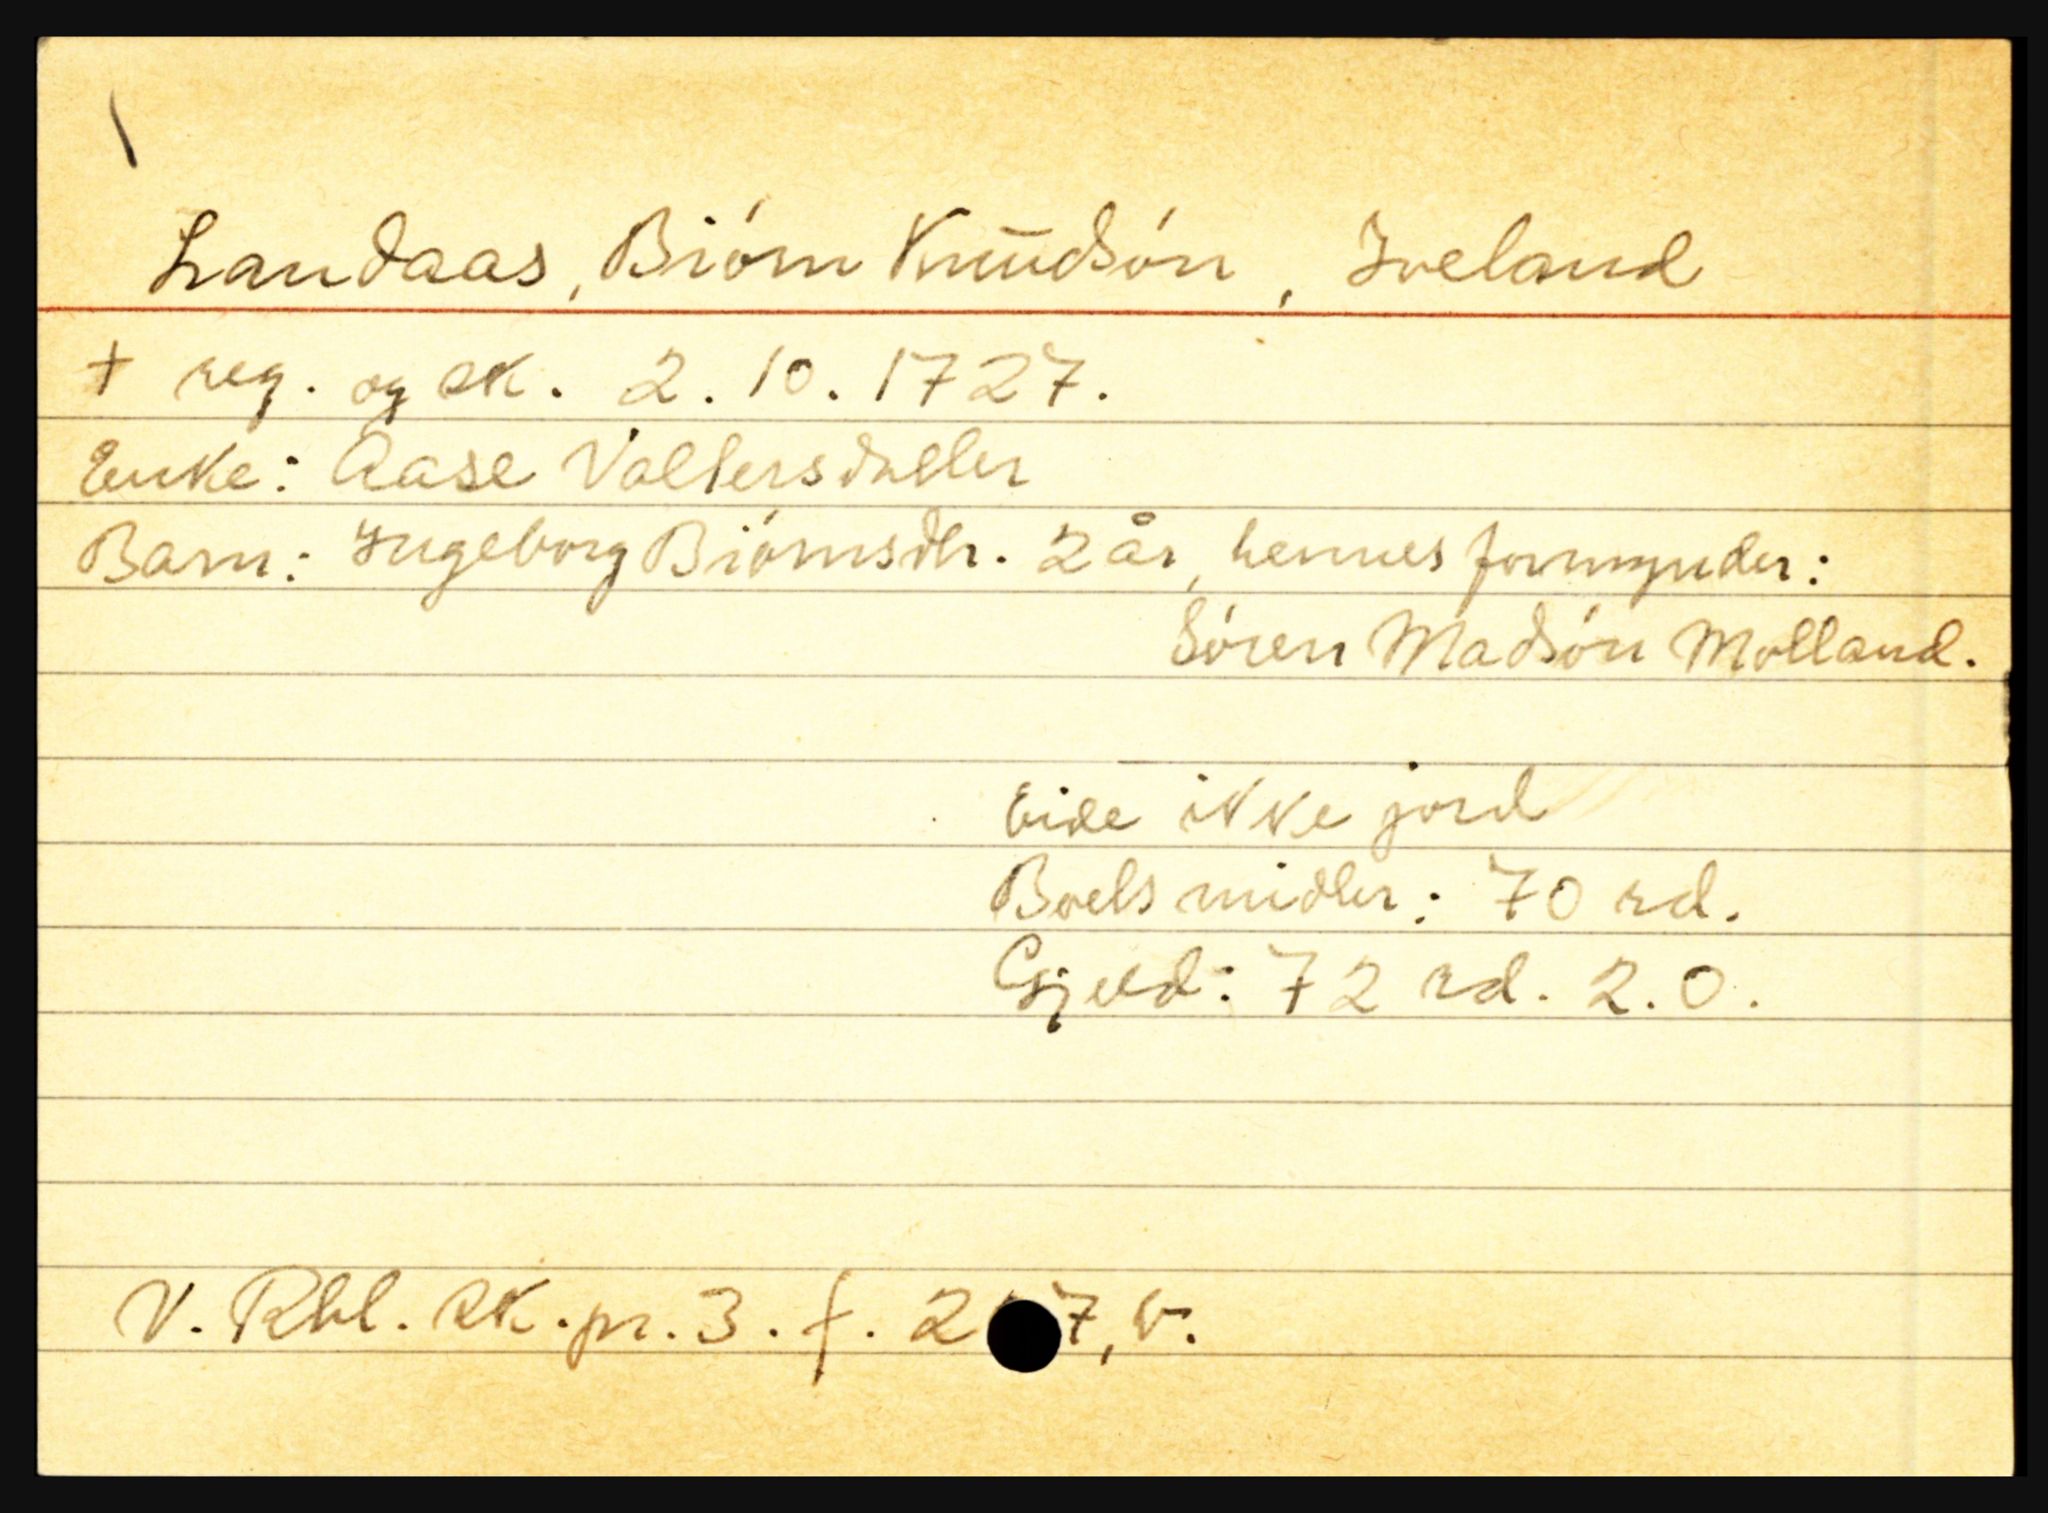 Landaas, Biórn Knudsón, Iveland
† reg. og sk. 2. 10. 1727.
Enke: Aase Valtersdatter
Barn: Ingeborg Biórnsdtr. 2 år, hennes formynder:
Sóren Madsón Molland.
Eide ikke jord
Boets midler: 70 rd.
Gjeld: 72 rd. 2. 0.
V. Rbl. sk. pr. 3. f.